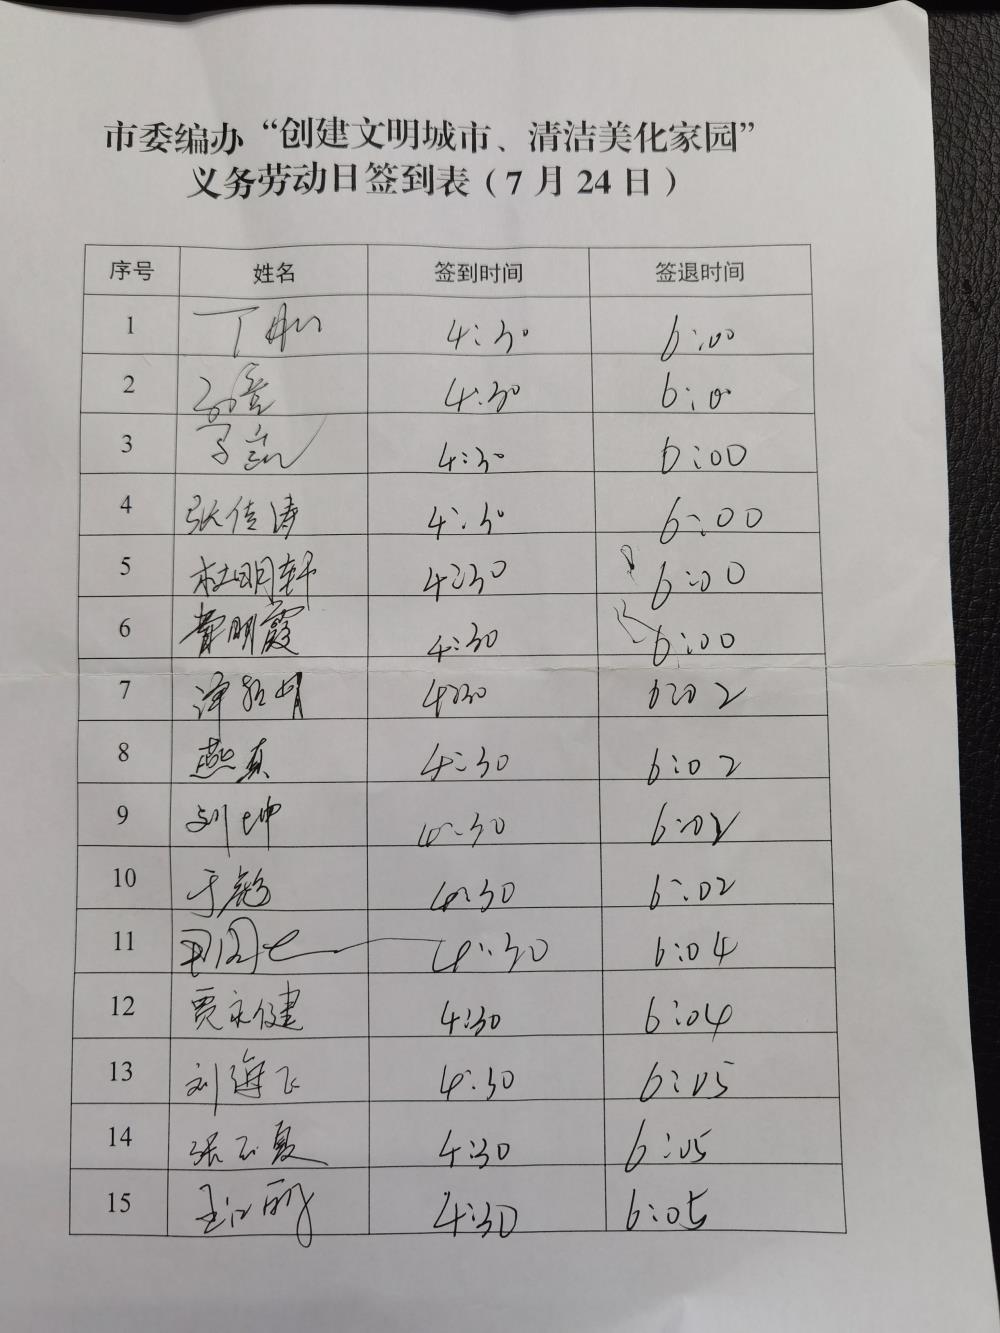 市委编办“创建文明城市、清洁美化家园”
义务劳动日签到表（7月24日）
序号 姓名 签到时间 签退时间
1 4:30 6:00
2 4:30 6:0
3 4:30 6:00
4 张佳涛 4:30 6:00
5 杜明轩 4:30 6:00
6 明霞 4:30 6:00
7 4:30 6:02
8 燕真 4:30 6:02
9 刘坤 4:30 6:02
10 于 4:30 6:02
11 4:30 6:04
12 贾永健 4:30 6:04
13 刘海飞 4:30 6:05
14 张玉夏 4:30 6:05
15 王江丽 4:30 6:05